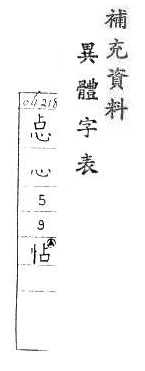 補充資料
異體字表
04218
惉
心
5
9
怗